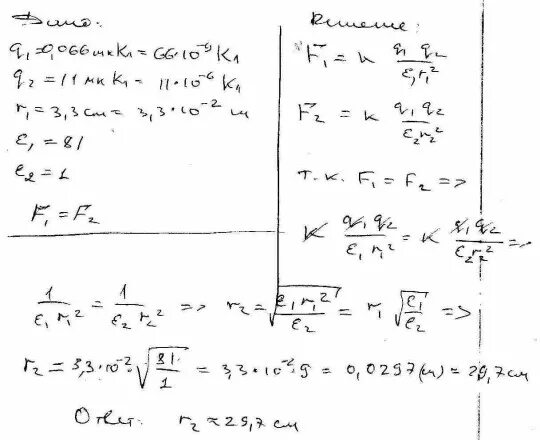 Дано:
q₁=0,066мкКл=66·10⁻⁹Кл
q₂=11мкКл=11·10⁻⁶Кл
r₁=3,3см=3,3·10⁻²м
ε₁=81
ε₂=1
F₁=F₂
Решение:
F₁=к q₁q₂/ε₁r₁²
F₂=к q₁q₂/ε₂r₂²
т.к. F₁=F₂=>
к q₁q₂/ε₁r₁²=к q₁q₂/ε₂r₂²=>
1/ε₁r₁²=1/ε₂r₂² => r₂=√(ε₁r₁²/ε₂)=r₁√(ε₁/ε₂)=>
r₂=3,3·10⁻²·√(81/1)=3,3·10⁻²·9=0,0297(м)=29,7см
Ответ: r₂≈29,7см